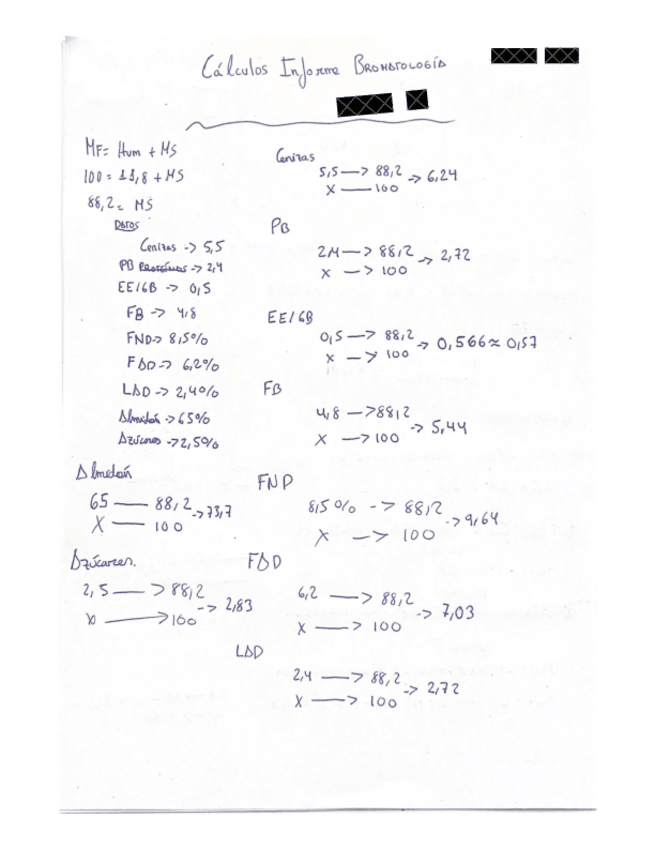 Cálculos Informe BROMATOLOGÍA
MF= Hum + MS
100 = 11,8 + MS
88,2 = MS
DATOS
Cenizas -> 5,5
PB PROTEÍNAS -> 2,4
EE/GB -> 0,5
FB -> 4,8
FND -> 8,5%
FAD -> 6,2%
LAD -> 2,4%
Almidón -> 65%
Azúcares -> 2,5%
Cenizas
5,5 —> 88,2 -> 6,24
X — 100
PB
2,4 —> 88,2 -> 2,72
x —> 100
EE/GB
0,5 —> 88,2 -> 0,566 ≈ 0,57
x —> 100
FB
4,8 —> 88,2 -> 5,44
X —> 100
Almidón
65 — 88,2 -> 73,7
X — 100
FND
8,5% -> 88,2 -> 9,64
X —> 100
Azúcares.
2,5 —> 88,2 -> 2,83
x —> 100
FAD
6,2 —> 88,2 -> 7,03
X —> 100
LAD
2,4 —> 88,2 -> 2,72
X —> 100